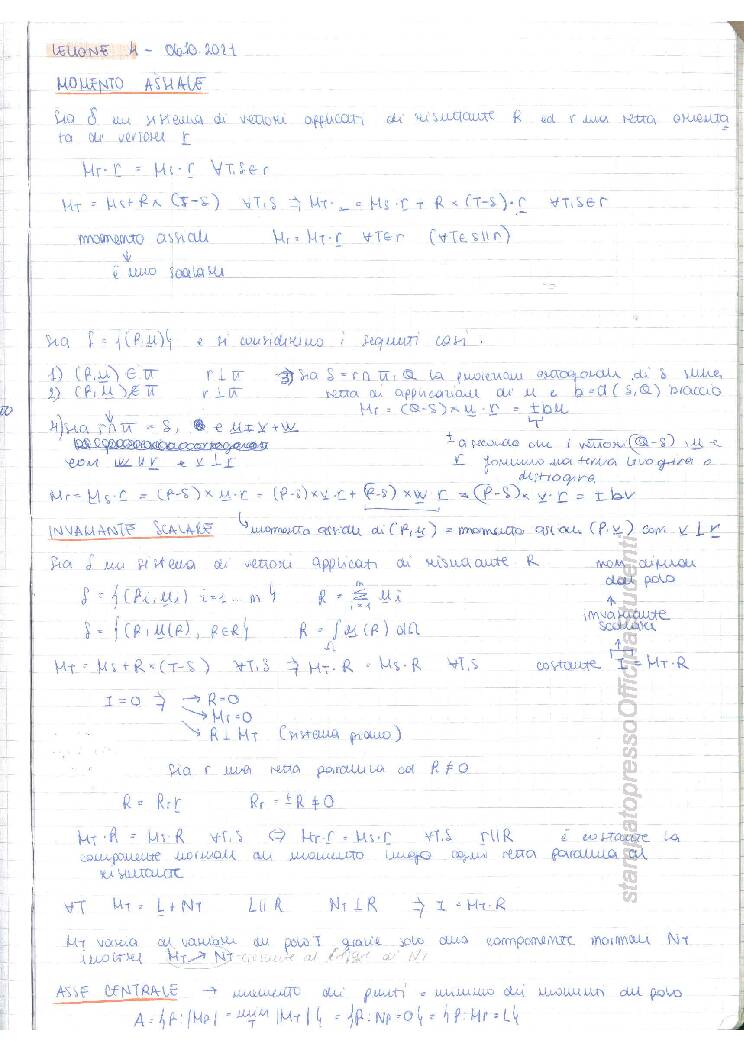 LEZIONE 4 - 06.10.2021
MOMENTO ASSIALE
Sia S un sistema di vettori applicati di risultante R ed r una retta orienta
ta di versore r
MT·r = MS·r ∀T,S∈r
MT = MS + R × (T-S) ∀T,S ⇒ MT· = MS·r + R × (T-S)·r ∀T,S∈r
momento assiale Mr = MT·r ∀T∈r (∀T∈S∥r)
↓
è uno scalare
Sia S = {(P,u)} e si considerino i seguenti casi.
1) (P,u) ∈ π r⊥π 3) Sia S = r∩π, Q la proiezione ortogonale di S sulla
2) (P,u) ∉ π r⊥π retta di applicazione di u e b=d(S,Q) braccio
Mr = (Q-S)×u·r = ±bu
4) Sia r∩π = S, e u = v+w
± a seconda che i vettori (Q-S), u e
con w∥r e v⊥r
r formino una terna levogira o
destrogira
Mr = MS·r = (P-S)×u·r = (P-S)×v·r + (P-S)×w·r = (P-S)×v·r = ±bv
INVARIANTE SCALARE
↳ momento assiale di (P,u) = momento assiale (P,v) con v⊥r
Sia S un sistema di vettori applicati di risultante R
non dipende
dal polo
S = {(Pi,ui) i=1...n} R = Σ ui
↑
invariante
scalare
S = {(P,u(P), P∈R} R = ∫ u(P) dΩ
MT = MS + R×(T-S) ∀T,S ⇒ MT·R = MS·R ∀T,S costante I = MT·R
I=0 ⇒ → R=0
→ MT=0
→ R⊥MT (sistema piano)
Sia r una retta parallela ad R≠0
R = Rr r Rr = ±R ≠ 0
MT·R = MS·R ∀T,S ⇔ MT·r = MS·r ∀T,S r∥R è costante la
componente normale del momento lungo ogni retta parallela al
risultante
∀T MT = L + NT L∥R NT⊥R ⇒ I = MT·R
MT varia al variare del polo T grazie solo alla componente normale NT
inoltre MT → NT
ASSE CENTRALE → momento dei punti = minimo dei momenti del polo
A = {P: |MP| = min |MT|} = {P: NP=0} = {P: MP=L}
stampatopressoOfficinaStudenti